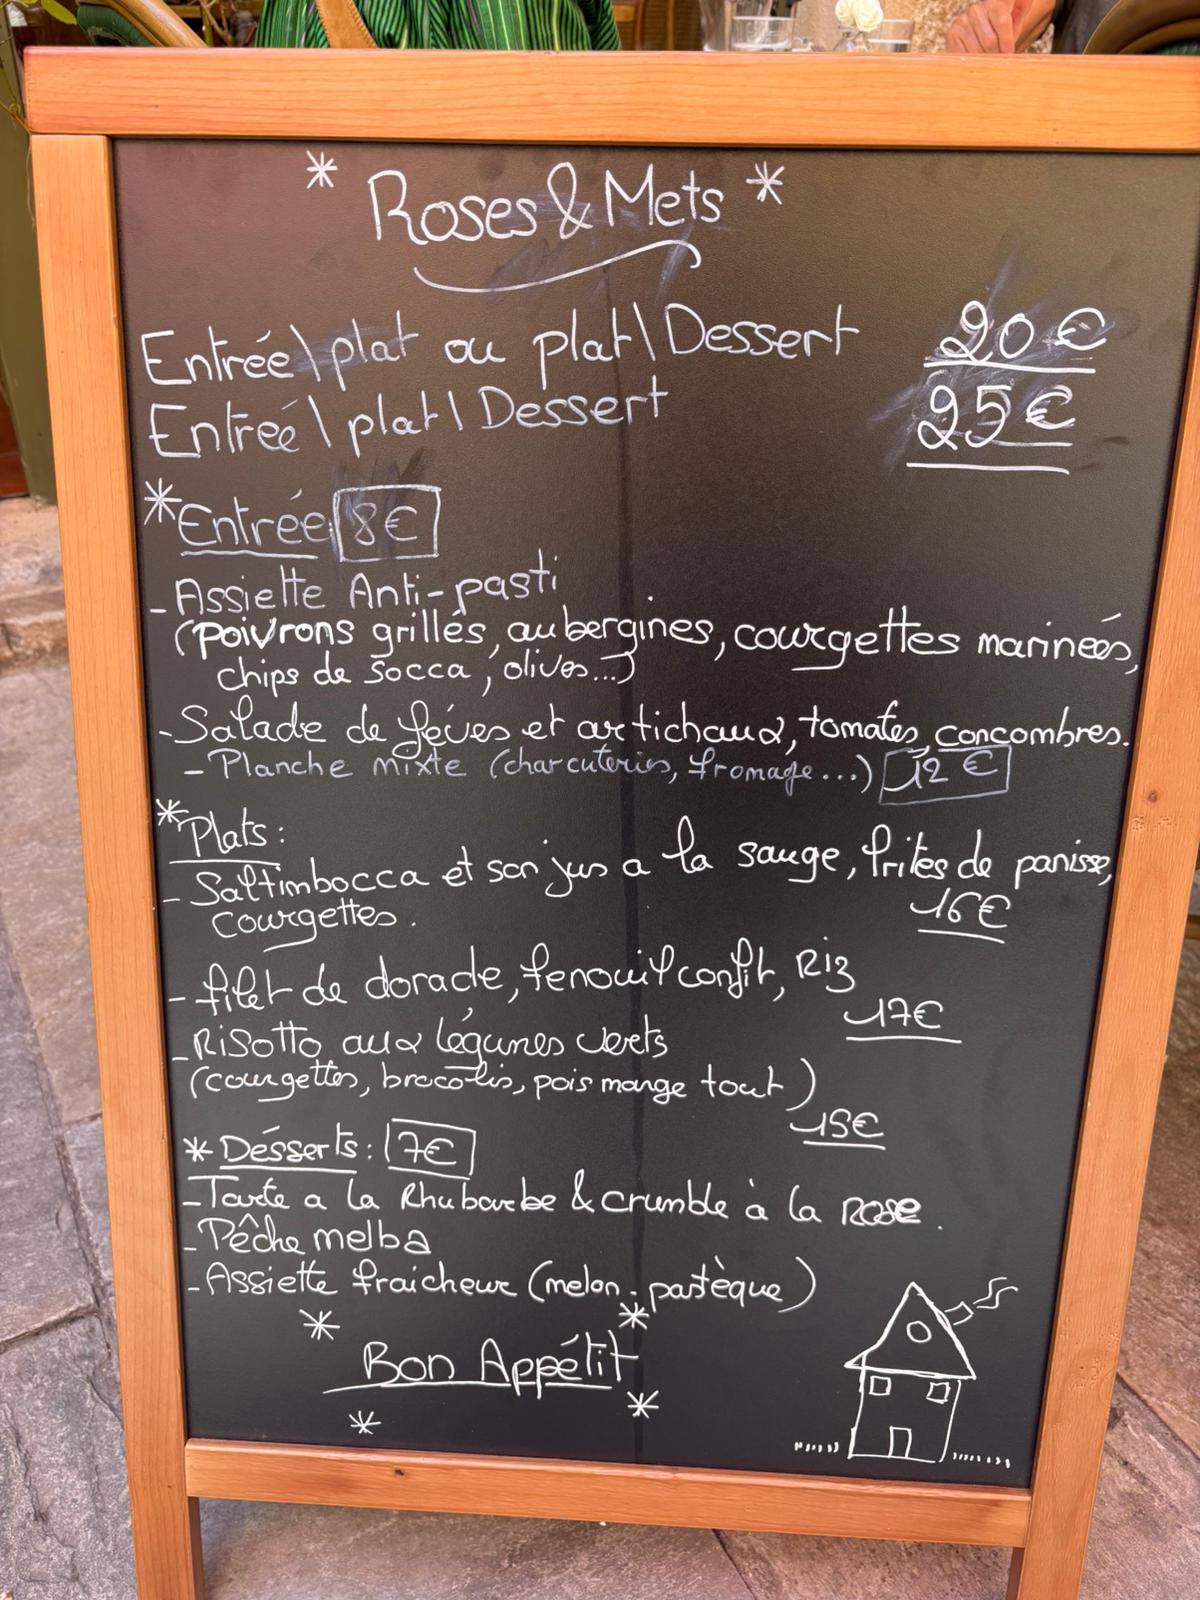 * Roses & Mets *
Entrée \ plat ou plat \ Dessert 20€
Entrée \ plat \ Dessert 25€
* Entrée 8€
- Assiette Anti-pasti
(Poivrons grillés, aubergines, courgettes marineés,
chips de socca, olives...)
- Salade de fèves et artichaux, tomates, concombres.
- Planche mixte (charcuteries, fromage...) 12€
* Plats :
- Saltimbocca et son jus a la sauge, frites de panisse,
courgettes. 16€
- filet de dorade, fenouil confit, Riz
17€
- Risotto aux légumes verts
(courgettes, brocolis, pois mange tout)
15€
* Désserts : 7€
- Tarte a la Rhubarbe & crumble à la Rose.
- Pêche melba
- Assiette fraicheur (melon - pastèque)
Bon Appétit